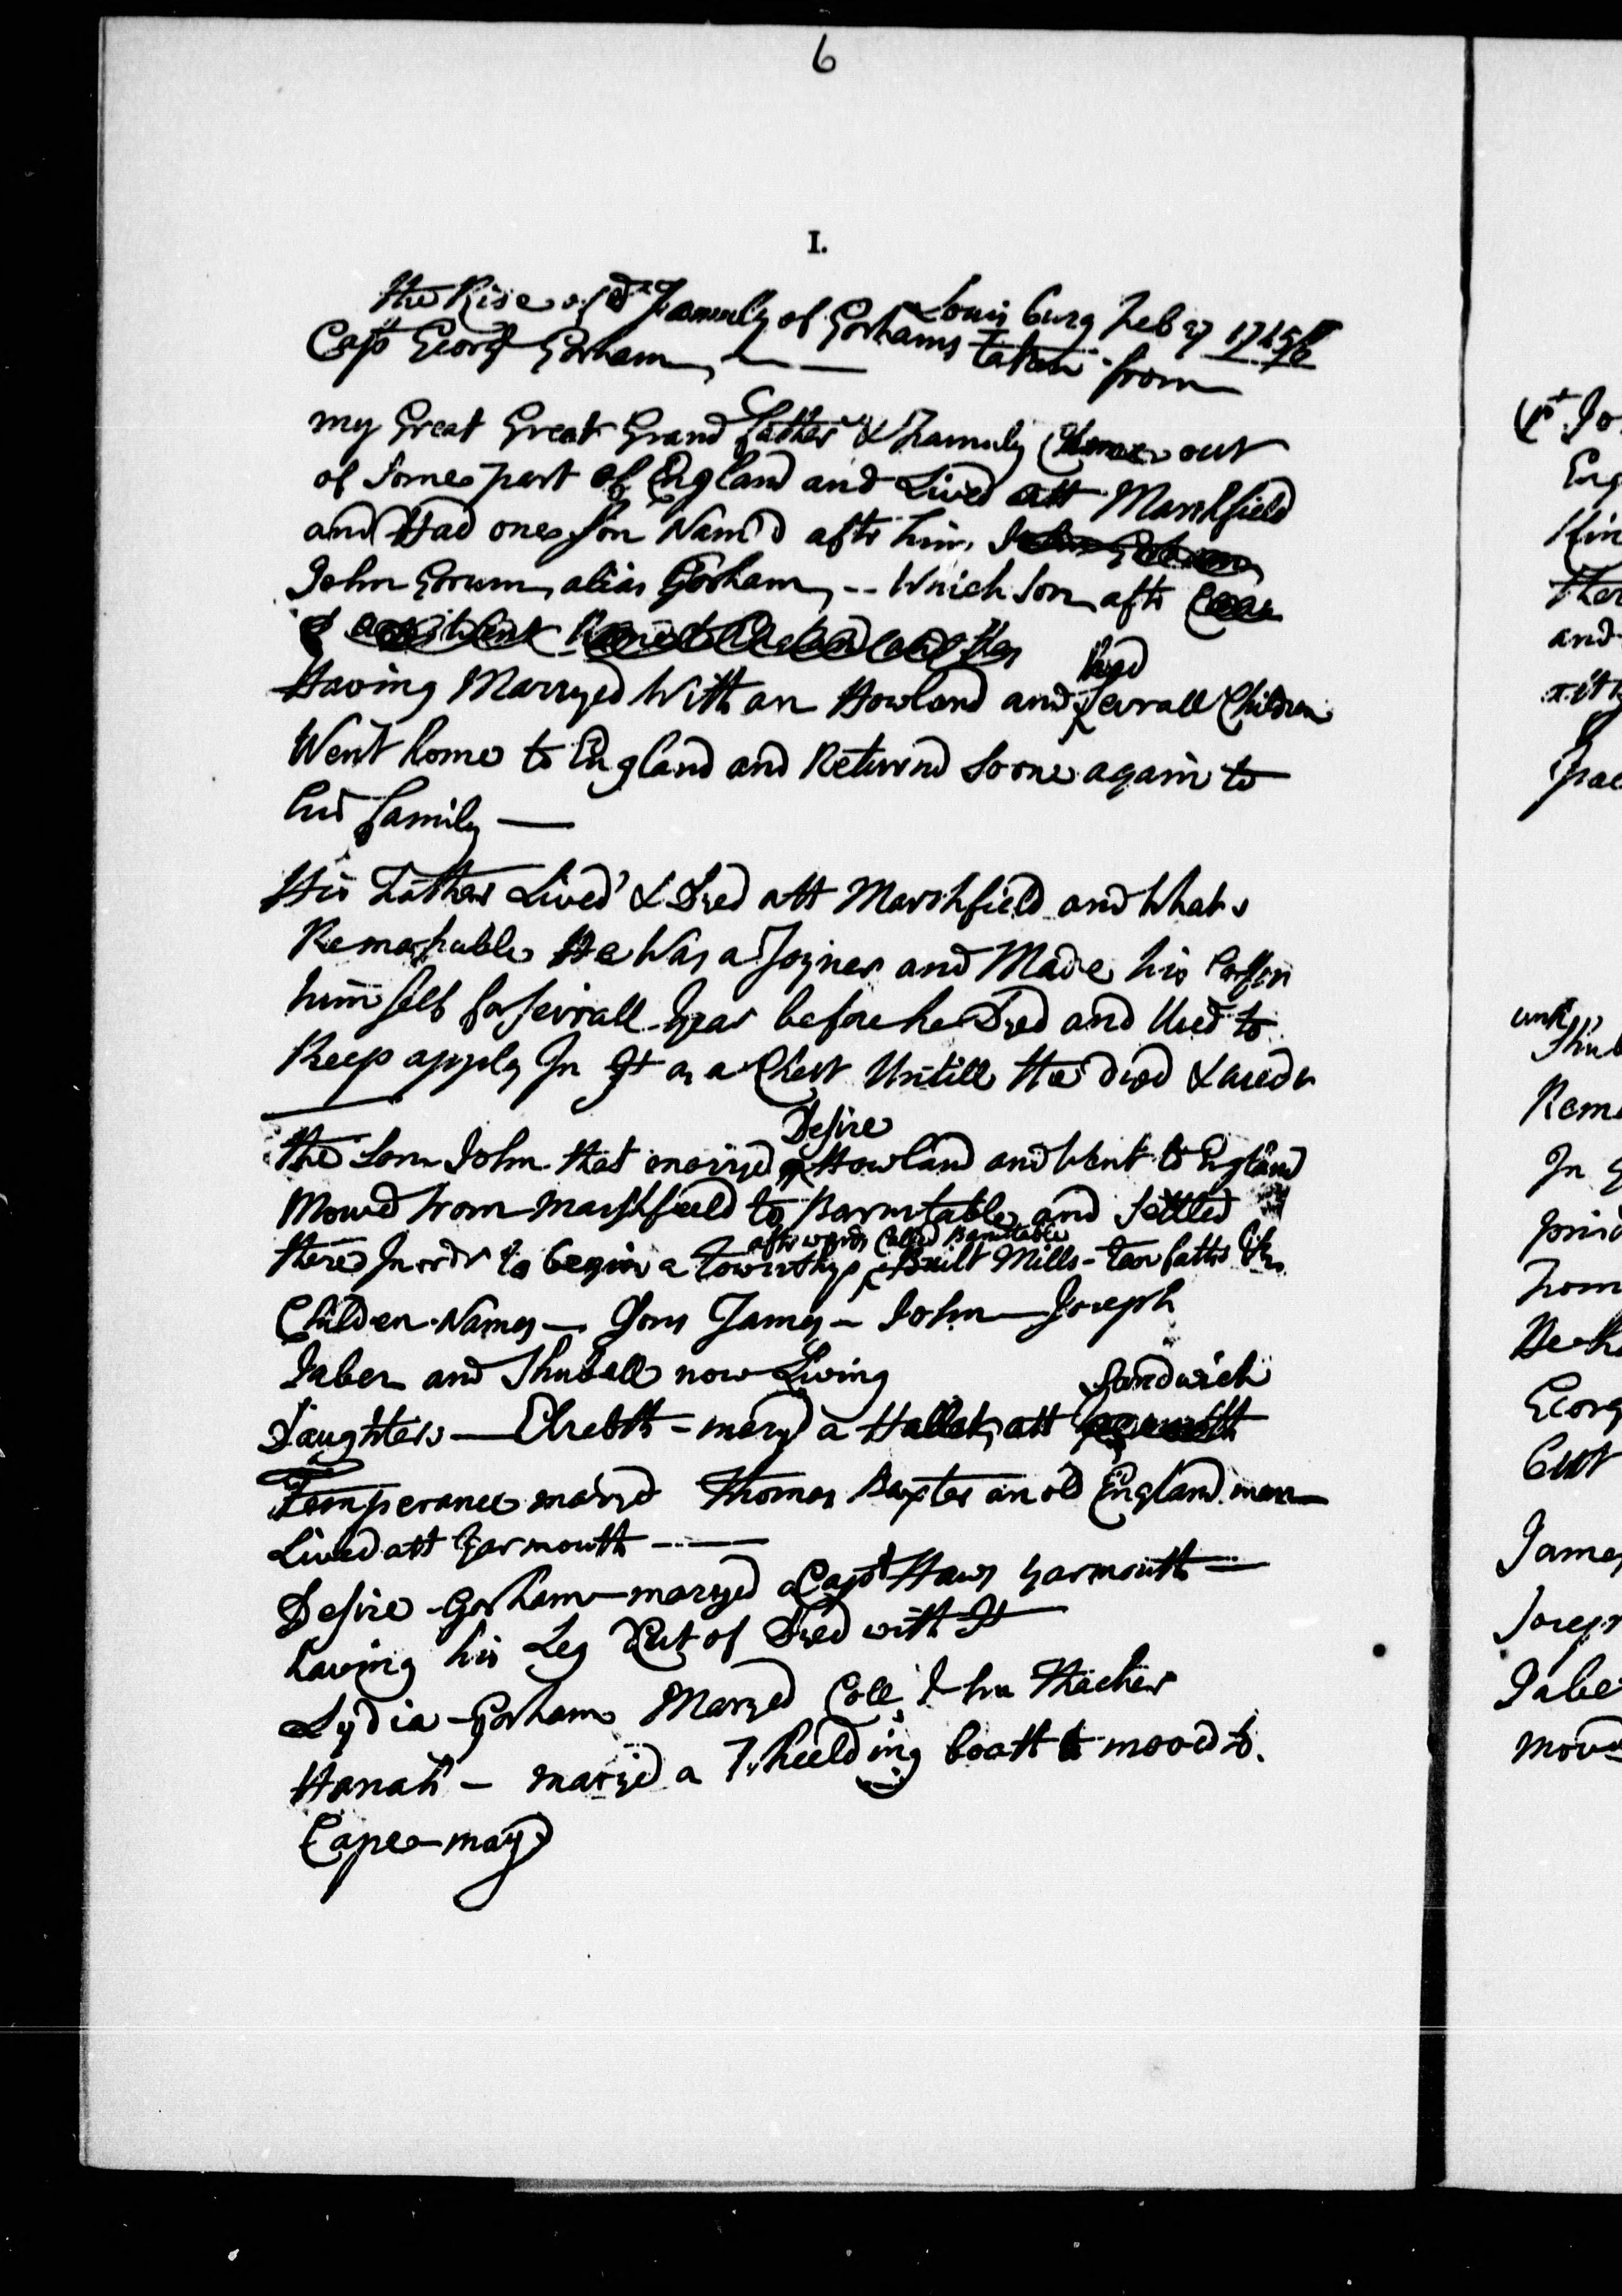 6
I.
Louisburg Feb 27 1745/6
The Rise of the Fammily of Gorhams Taken from
Capt Georg Gorham,
my Great Great Grand father & Fammily Came out
of Some part of England and Lived att Marshfield
and Had one Son Nam'd aftr him
John Gorum, alias Gorham, -- Which Son, aftr
Having Marryed With an Howland and had Sevrall Children
Went home to England and Returnd Soone again to
his family —
His Father Lived & Dyed att Marshfield and What s
Remarkable He Was a Joyner and Made his Coffin
him self for Sevrall Year before he Dyed and Used to
Keep apples In It as a Chest Untill He died &
The Son John that marryed Desire Howland and Went to England
Moved from Marshfield to Barnstable and Settled
there In ordr to begin a Township afterwards Called Barnstable Built Mills - tan fatts &c
Children Names — Sons James — John — Joseph
Jaber and Shuball now Living
Daughters — Elsebth - maryd a Hallet, att Sandwich
Temperance maryd Thomas Baxter an old England man
Lived att Yarmouth ---
Desire Gorham maryed a Capt Haws Yarmouth —
having his Leg Cut of Dyed with It
Lydia Gorham Maryed Coll John Thacher
Hanah — maryed a Wheelding boath moovd to
Cape may